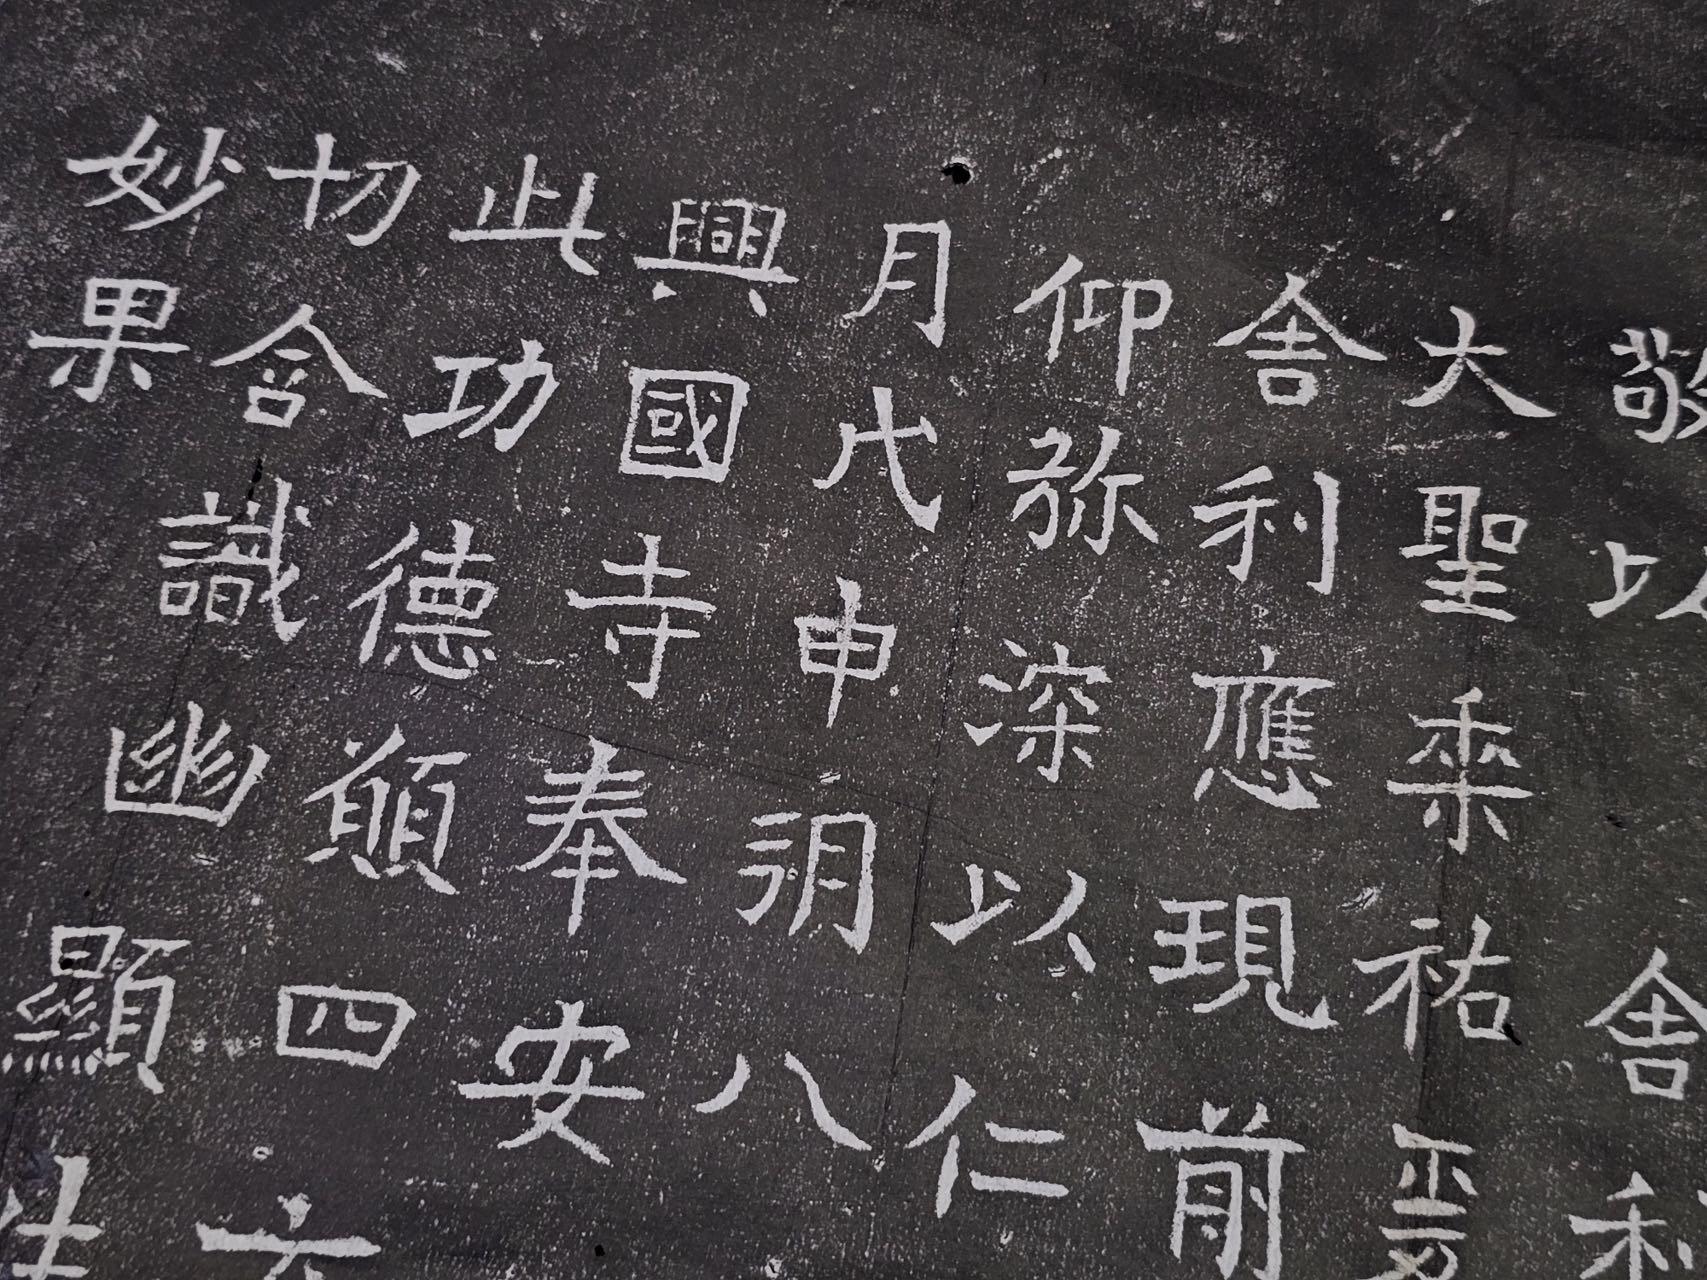 敬以舍利
大聖垂祐
舍利應現前
仰弥深以仁
月戊申朔八
興國寺奉安
此功德願四
切含識幽顯生
妙果